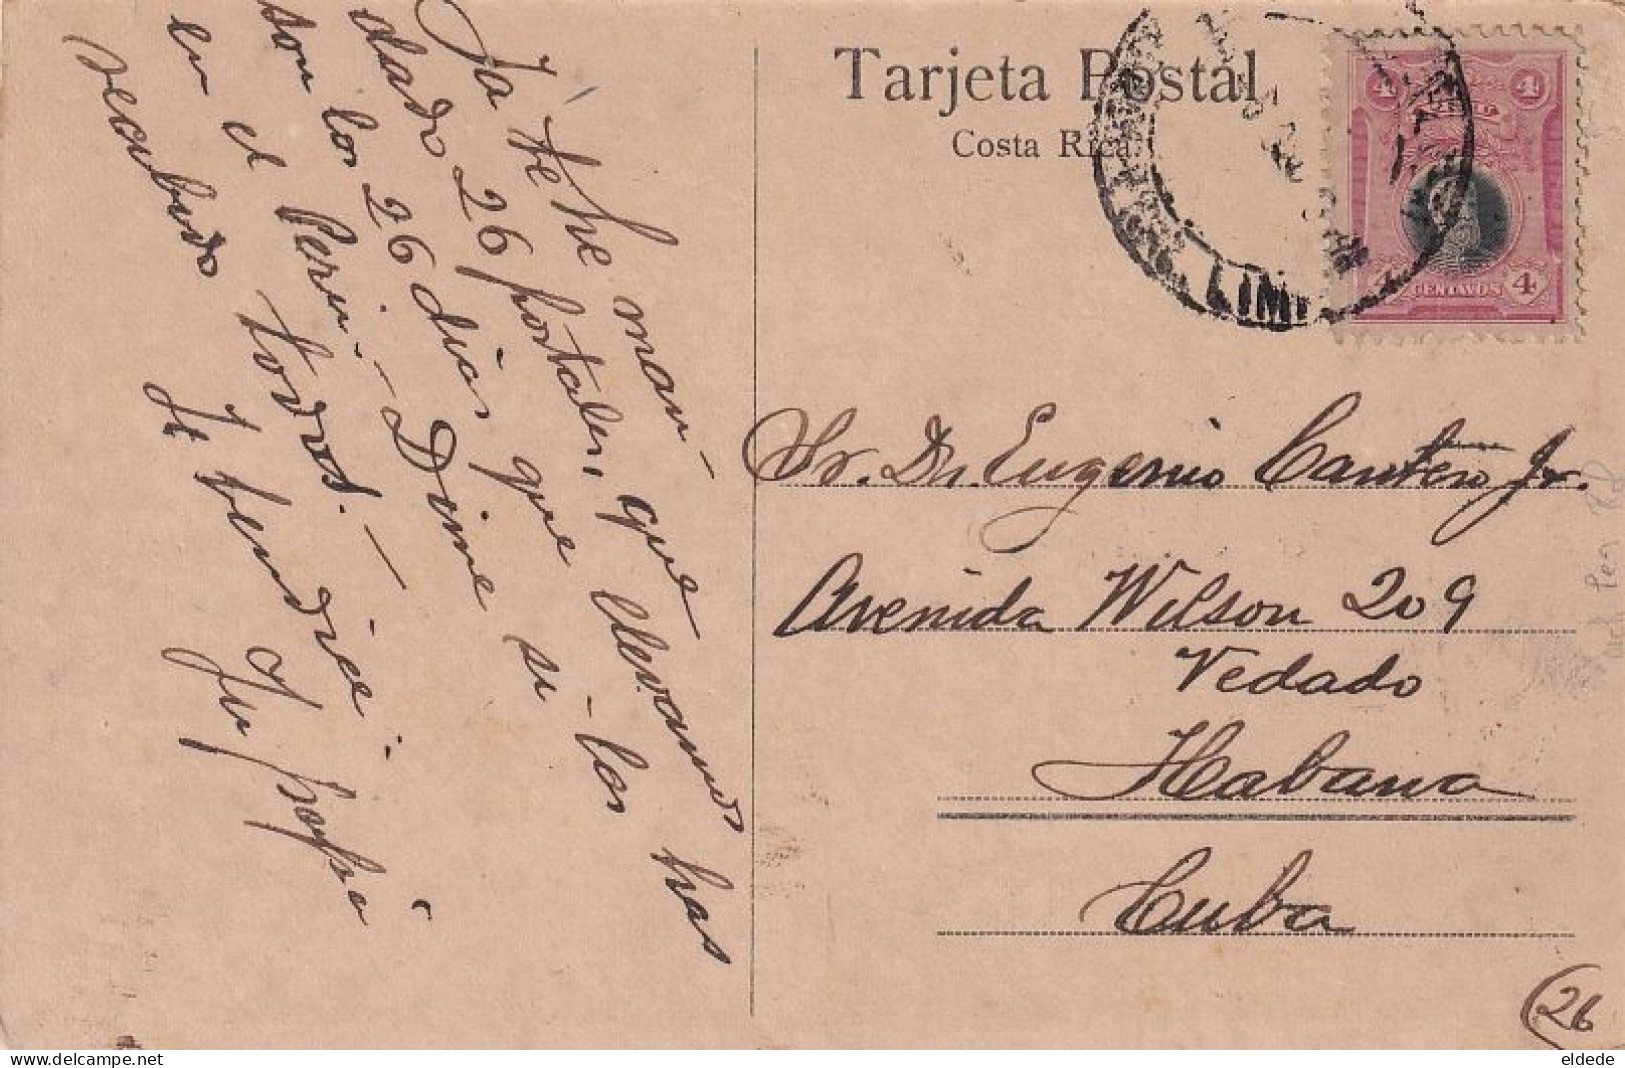 Ya te he man-
dado 26 postales, que
son los 26 dias que llevamos
en el Peru.- Dime si los has
recibido todos.-
Te bendice
Tu papá
Tarjeta Postal
Costa Rica
LIMA
4 4
4 CENTAVOS 4
Sr. Dr. Eugenio Cantero Jr.
Avenida Wilson 209
Vedado
Habana
Cuba
26
eldede